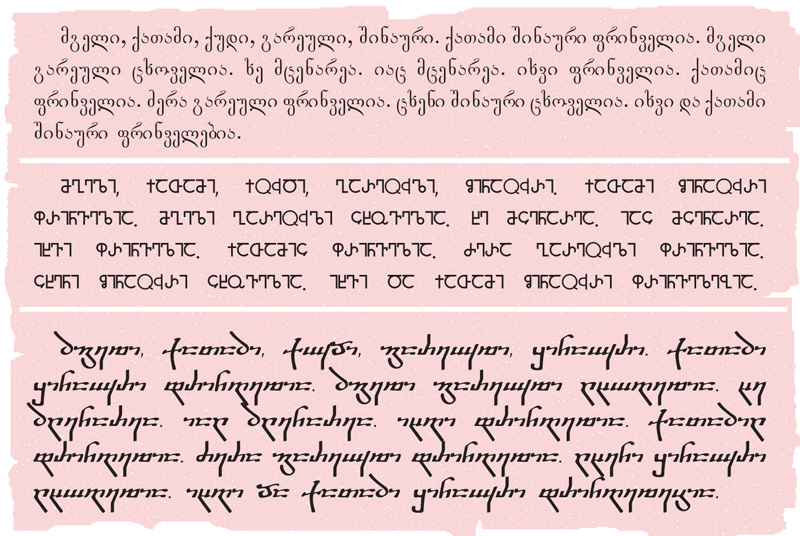 მგელი, ქათამი, ქუდი, გარეული, შინაური. ქათამი შინაური ფრინველია. მგელი
გარეული ცხოველია. ხე მცენარეა. იაც მცენარეა. იხვი ფრინველია. ქათამიც
ფრინველია. ძერა გარეული ფრინველია. ცხენი შინაური ცხოველია. იხვი და ქათამი
შინაური ფრინველებია.
ႫႢႤႪႨ, ႵႠႧႠႫႨ, ႵႭჃႣႨ, ႢႠႰႤႭჃႪႨ, ႸႨႬႠႭჃႰႨ. ႵႠႧႠႫႨ ႸႨႬႠႭჃႰႨ
ႴႰႨႬႥႤႪႨႠ. ႫႢႤႪႨ ႢႠႰႤႭჃႪႨ ႺႾႭႥႤႪႨႠ. ႾႤ ႫႺႤႬႠႰႤႠ. ႨႠႺ ႫႺႤႬႠႰႤႠ.
ႨႾႥႨ ႴႰႨႬႥႤႪႨႠ. ႵႠႧႠႫႨႺ ႴႰႨႬႥႤႪႨႠ. ႻႤႰႠ ႢႠႰႤႭჃႪႨ ႴႰႨႬႥႤႪႨႠ.
ႺႾႤႬႨ ႸႨႬႠႭჃႰႨ ႺႾႭႥႤႪႨႠ. ႨႾႥႨ ႣႠ ႵႠႧႠႫႨ ႸႨႬႠႭჃႰႨ ႴႰႨႬႥႤႪႤႡႨႠ.
ⴋⴂⴄⴊⴈ, ⴕⴀⴇⴀⴋⴈ, ⴕⴓⴃⴈ, ⴂⴀⴐⴄⴓⴊⴈ, ⴘⴈⴌⴀⴓⴐⴈ. ⴕⴀⴇⴀⴋⴈ
ⴘⴈⴌⴀⴓⴐⴈ ⴔⴐⴈⴌⴅⴄⴊⴈⴀ. ⴋⴂⴄⴊⴈ ⴂⴀⴐⴄⴓⴊⴈ ⴚⴞⴍⴅⴄⴊⴈⴀ. ⴞⴄ
ⴋⴚⴄⴌⴀⴐⴄⴀ. ⴈⴀⴚ ⴋⴚⴄⴌⴀⴐⴄⴀ. ⴈⴞⴅⴈ ⴔⴐⴈⴌⴅⴄⴊⴈⴀ. ⴕⴀⴇⴀⴋⴈⴚ
ⴔⴐⴈⴌⴅⴄⴊⴈⴀ. ⴛⴄⴐⴀ ⴂⴀⴐⴄⴓⴊⴈ ⴔⴐⴈⴌⴅⴄⴊⴈⴀ. ⴚⴞⴄⴌⴈ ⴘⴈⴌⴀⴓⴐⴈ
ⴚⴞⴍⴅⴄⴊⴈⴀ. ⴈⴞⴅⴈ ⴃⴀ ⴕⴀⴇⴀⴋⴈ ⴘⴈⴌⴀⴓⴐⴈ ⴔⴐⴈⴌⴅⴄⴊⴄⴁⴈⴀ.